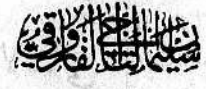 سليمان التاجي الفاروقي